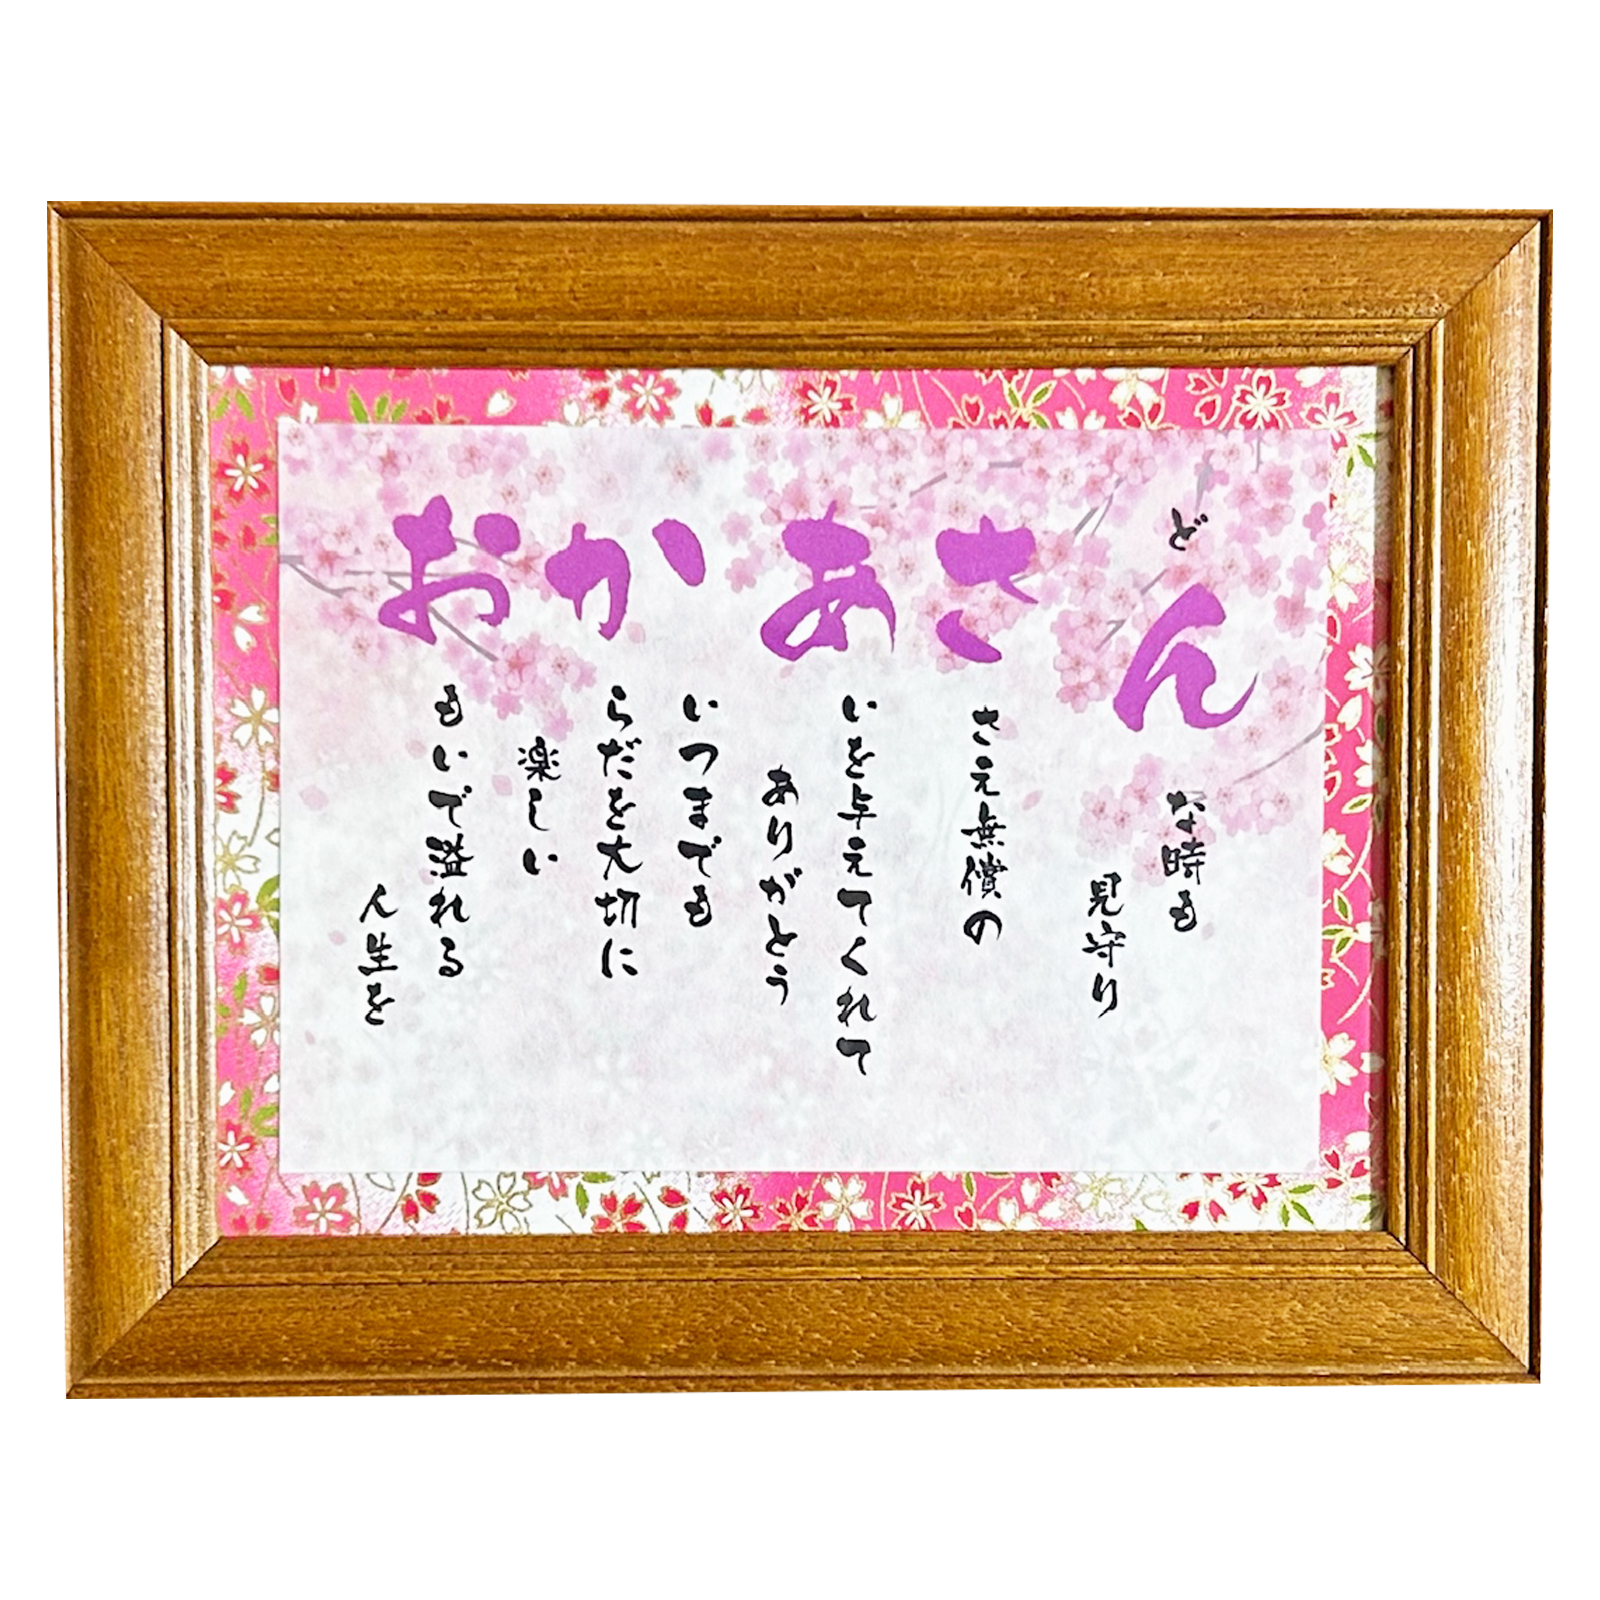 どんな時も
見守り
ささえ無償の
あいを与えてくれて
ありがとう
いつまでも
からだを大切に
楽しい
おもいで溢れる
人生を